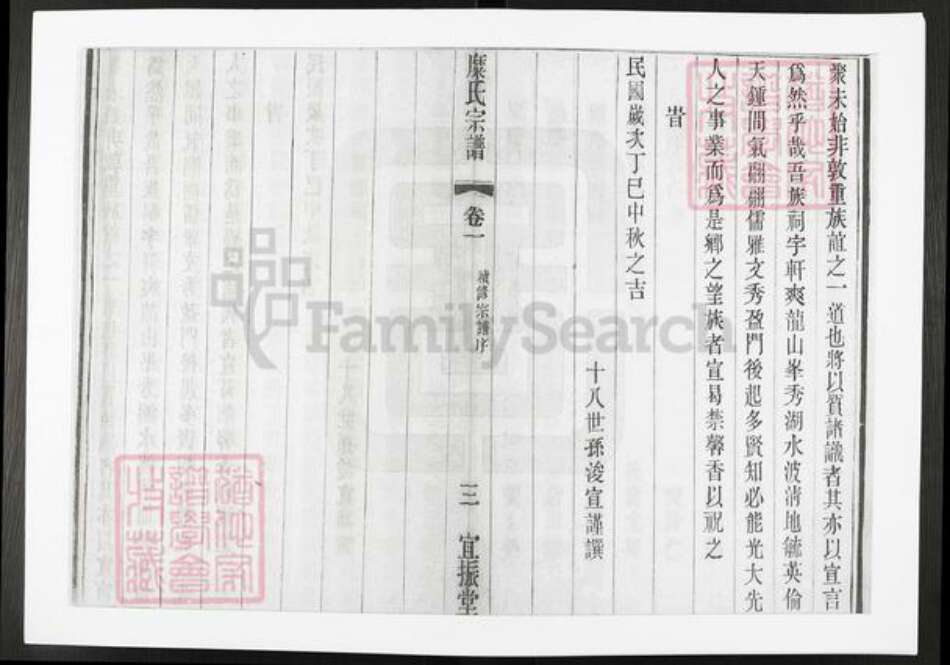 聚未始非敦重族誼之一道也將以質諸識者其亦以宣言
爲然乎哉吾族祠宇軒爽龍山峯秀湖水波清地毓英倫
天鍾間氣翩翩儒雅文秀盈門後起多賢知必能光大先
人之事業而爲是鄉之望族者宣曷禁馨香以祝之
旹
民國歲次丁巳中秋之吉
十八世孫浚宣謹譔
糜氏宗譜
卷一
續修宗譜序
三
宜振堂
FamilySearch